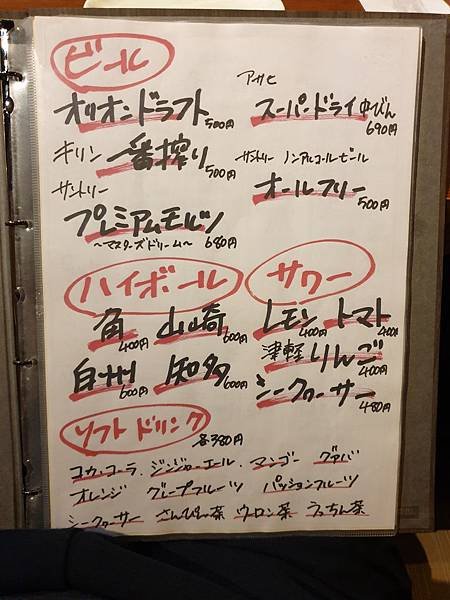 ビール
オリオンドラフト 500円
キリン 一番搾り 500円
サントリー
プレミアムモルツ
〜マスターズドリーム〜 680円
アサヒ
スーパードライ 中びん 690円
サントリー ノンアルコールビール
オールフリー 500円
ハイボール
角 400円 山崎 600円
白州 600円 知多 600円
サワー
レモン 400円 トマト 400円
津軽りんご 400円
シークヮーサー 480円
ソフトドリンク 各380円
コカ・コーラ、ジンジャーエール、マンゴー グァバ
オレンジ グレープフルーツ パッションフルーツ
シークヮーサー さんぴん茶 ウーロン茶 うっちん茶